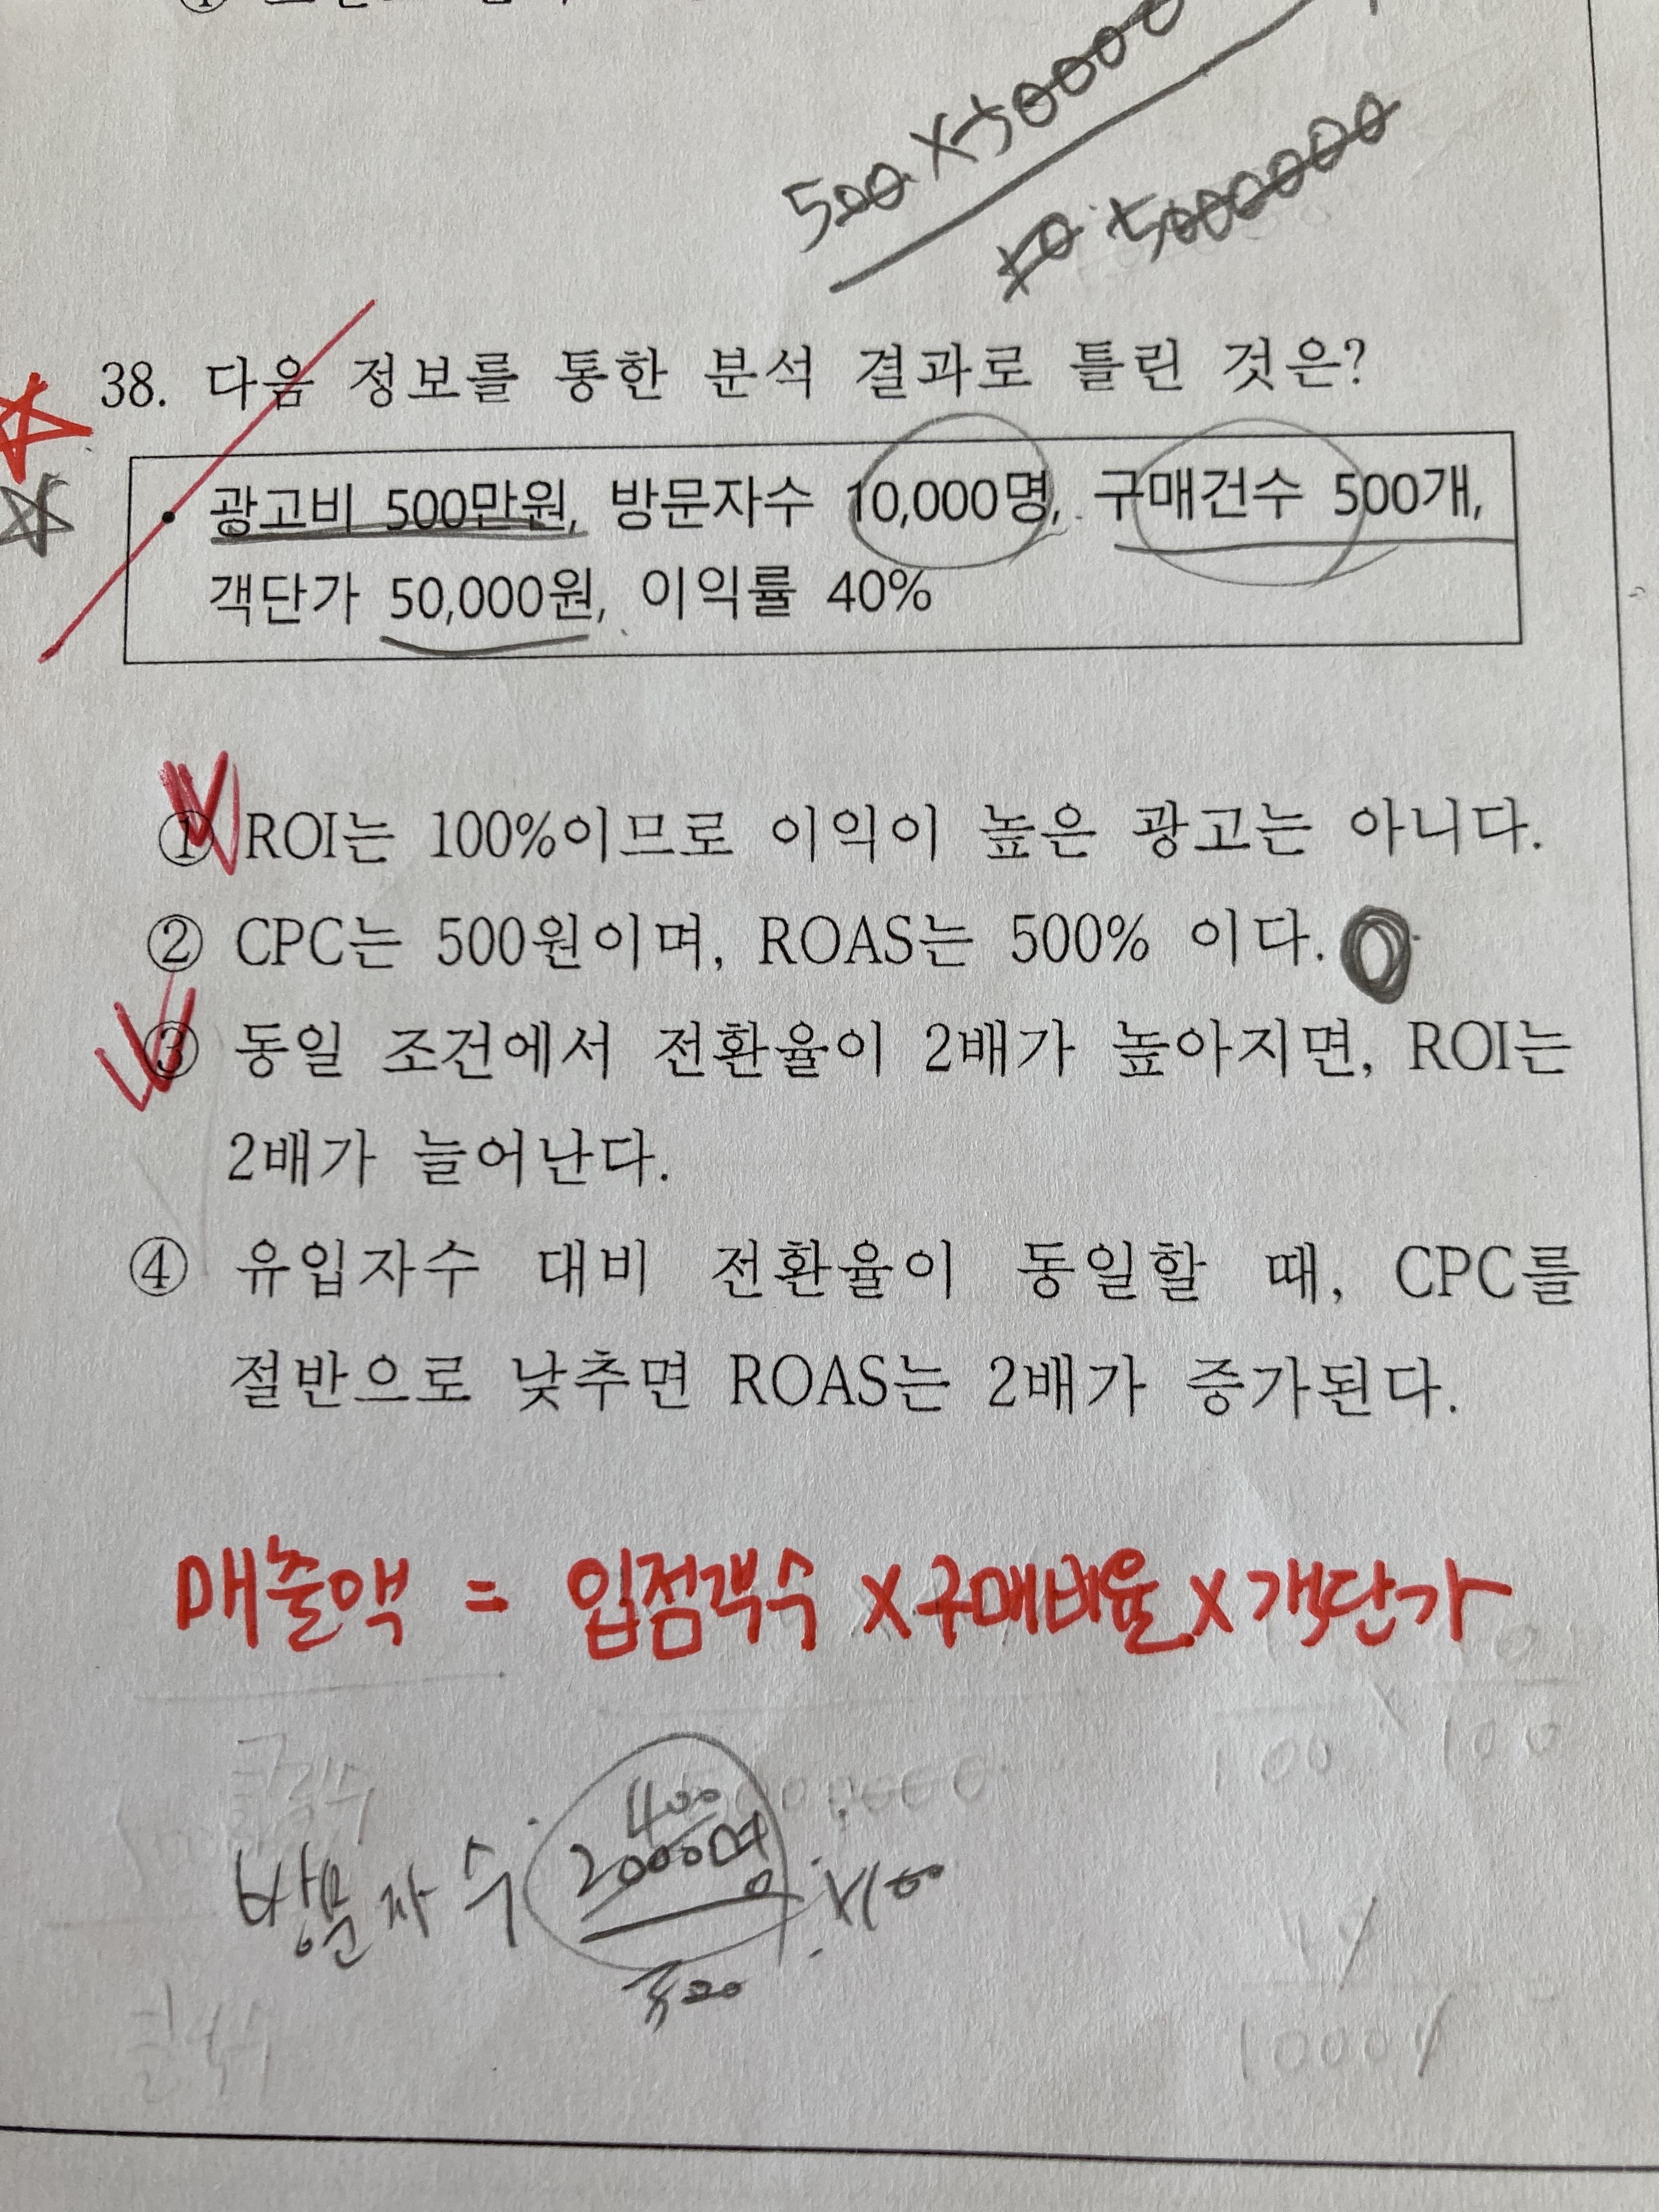 500 × 50000
10 × 5000000
38. 다음 정보를 통한 분석 결과로 틀린 것은?
• 광고비 500만원, 방문자수 10,000명, 구매건수 500개,
객단가 50,000원, 이익률 40%
① ROI는 100%이므로 이익이 높은 광고는 아니다.
② CPC는 500원이며, ROAS는 500% 이다.
③ 동일 조건에서 전환율이 2배가 높아지면, ROI는
2배가 늘어난다.
④ 유입자수 대비 전환율이 동일할 때, CPC를
절반으로 낮추면 ROAS는 2배가 증가된다.
매출액 = 입점객수 × 구매비율 × 객단가
클릭수
400
방문자수 2000명 ×100